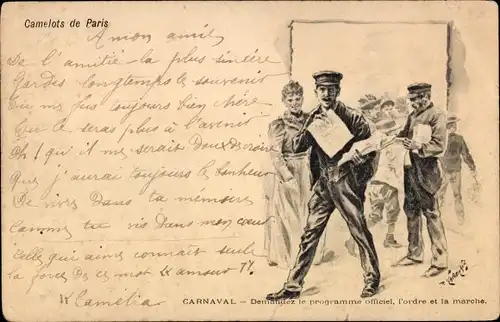 Camelots de Paris
A mon amie
De l'amitié la plus sincère
Gardes longtemps le souvenir
Tu me fus toujours bien chère
Tu le seras plus à l'avenir
Oh ! qu'il me serait doux de croire
Que j'aurai toujours le bonheur
De vivre dans ta mémoire
Comme tu vis dans mon cœur
Celle qui aime connait seule
la force de ces mot "amour"
Camélia
CARNAVAL – Demandez le programme officiel, l'ordre et la marche.